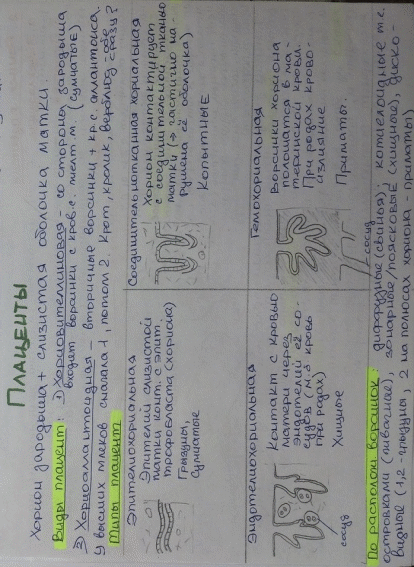 ПЛАЦЕНТЫ
Хорион зародыша + слизистая оболочка матки.
Виды плацент: 1) Хориовителлиновая - со стороны зародыша
входят ворсинки с кров. с. желт. м (сумчатые)
2) Хориоаллантоидная - вторичные ворсинки + кр.с. аллантоиса.
У высших млеков сначала 1, потом 2. Крот, кролик, верблюд - обе сразу?
Типы плацент
Эпителиохориальная
Эпителий слизистой
матки конт. с эпит.
трофобласта (хориона)
Грызуны,
Сумчатые
Соединительнотканная хориальная
Хорион контактирует
с соединительной тканью
матки (→ частично на-
рушена её оболочка)
Копытные
Эндотелиохориальная
Контакт с кровью
матери через
эндотелий её со-
судов (кровь
при родах)
Хищные
сосуд
Гемохориальная
Ворсинки хориона
полощатся в ма-
теринской крови.
При родах крово-
излияние
Приматы.
сосуд
По располож. ворсинок: диффузные (свинья); котиледоидные т.е.
островками (жвачные), зонарные/поясковые (хищные), диско-
видные (1,2 - грызуны, 2 на полюсах хориона - приматы)